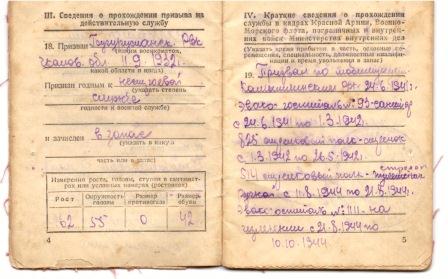 III. Сведения о прохождении призыва на
действительную службу
18. Признан
(каким военкоматом,
II 9 1932г.
какой области и когда)
Признан годным к нестроевой
(указать степень
службе
годности к военной службе)
и зачислен в запас
(указать в какую
часть или в запас)
Измерения роста, головы, ступни в сантимет-
рах или условных номерах (ростовках)
Рост
Окружность головы
Размер противогаза
Размер обуви
162 55 0 42
4
IV. Краткие сведения о прохождении
службы в кадрах Красной Армии, Военно-
Морского флота, пограничных и внутрен-
них войск Министерства внутренних дел
(Указать время прибытия в часть, основные пе-
ремещения, специальность, должностные квалифи-
кации и время увольнения в запас)
19. Призван по мобилизации
24.6.41г.
Эвако-госпиталь № 92- санитар
с 24.6.41 по 1.3.1942.
825 стрелковый полк- стрелок
с 1.3.1942 по 26.5.1942г.
стрелок
514 стрелковый полк-
с 11.8.1944 по 21.8.1944г.
Эвак-госпиталь № 1111- на
излечении с 21.8.1944 по
10.10.1944
5